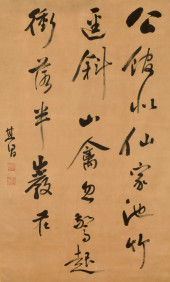 公館似仙家池竹
逕斜山禽忽驚起
衝落半巖花
其昌